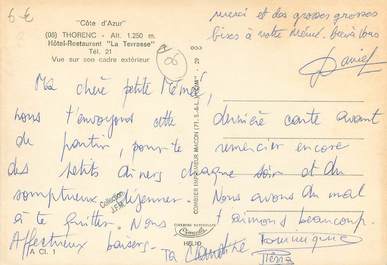 6 €
"Côte d'Azur"
(06) THORENC - Alt. 1.250 m.
Hôtel-Restaurant "La Terrasse"
Tél. 21
Vue sur son cadre extérieur
06
merci et des grosses grosses
bises à notre Mémé.
Daniel
Ma chère petite Mémé,
nous t'envoyons cette dernière carte avant
de partir, pour te remercier encore
des petits dîners chaque soir et du
somptueux déjeuner. Nous avons du mal
à te quitter. Nous t'aimons beaucoup.
Affectueux baisers - Ta Christine Dominique
Collection
J.F.M.
COMBIER IMPRIMEUR MACON
A Cl. 1
HELIO